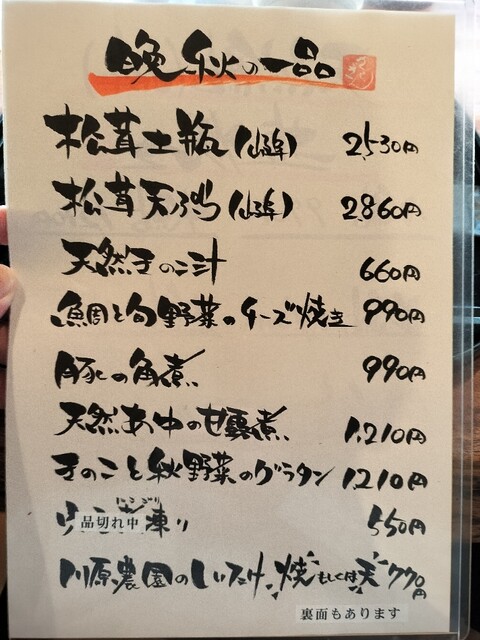 晩秋の一品
松茸土瓶 2,530円
松茸天ぷら 2,860円
天然きのこ汁 660円
鯛と旬野菜のチーズ焼き 990円
豚の角煮 990円
天然あゆの甘露煮 1,210円
きのこと秋野菜のグラタン 1,210円
にこごり
品切れ中 凍り 550円
川原農園のしいたけ 焼 もしくは 天 770円
裏面もあります